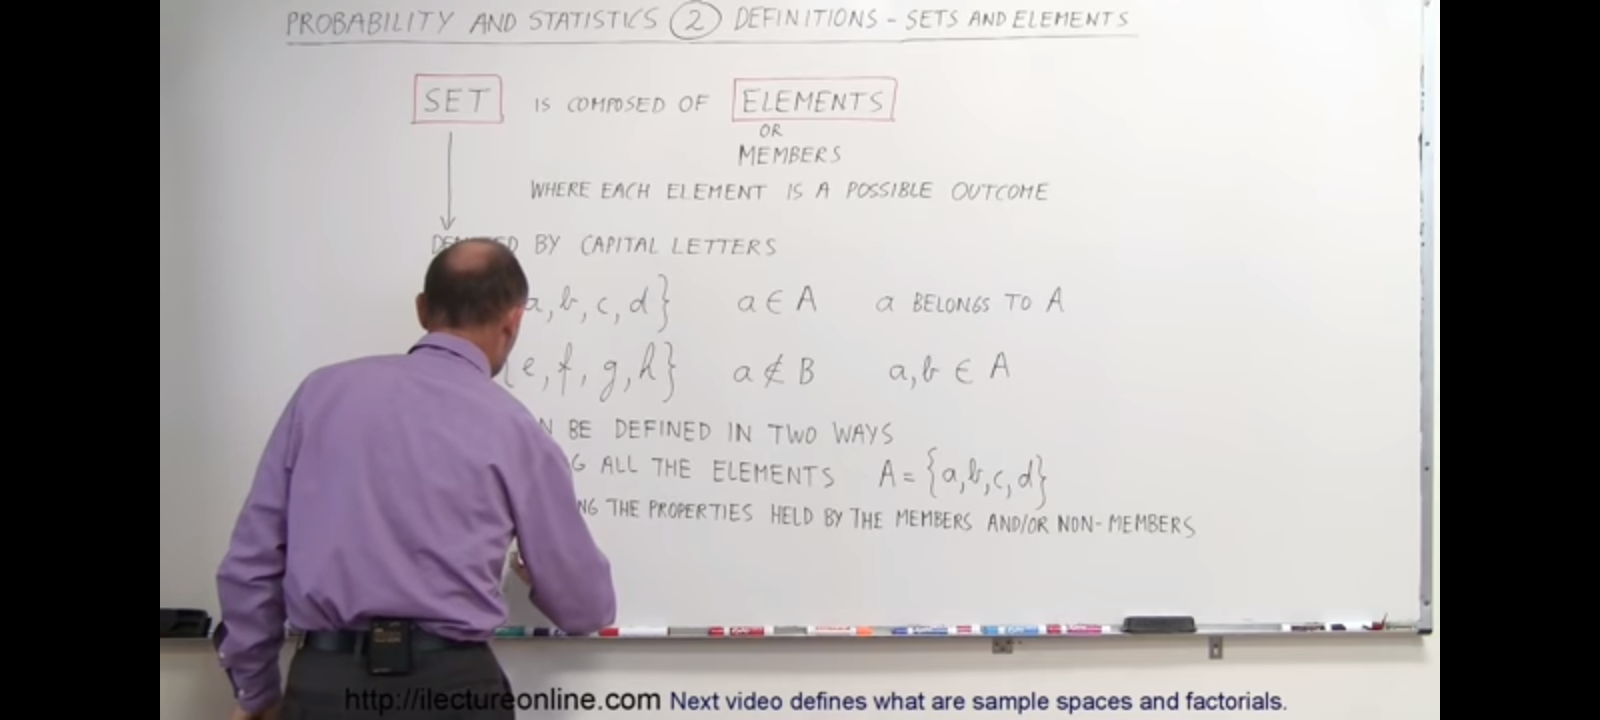 PROBABILITY AND STATISTICS 2 DEFINITIONS - SETS AND ELEMENTS
SET IS COMPOSED OF ELEMENTS
OR
MEMBERS
WHERE EACH ELEMENT IS A POSSIBLE OUTCOME
BY CAPITAL LETTERS
a, b, c, d} a ∈ A a BELONGS TO A
{e, f, g, h} a ∉ B a, b ∈ A
BE DEFINED IN TWO WAYS
ALL THE ELEMENTS A = {a, b, c, d}
THE PROPERTIES HELD BY THE MEMBERS AND/OR NON-MEMBERS
http://ilectureonline.com Next video defines what are sample spaces and factorials.